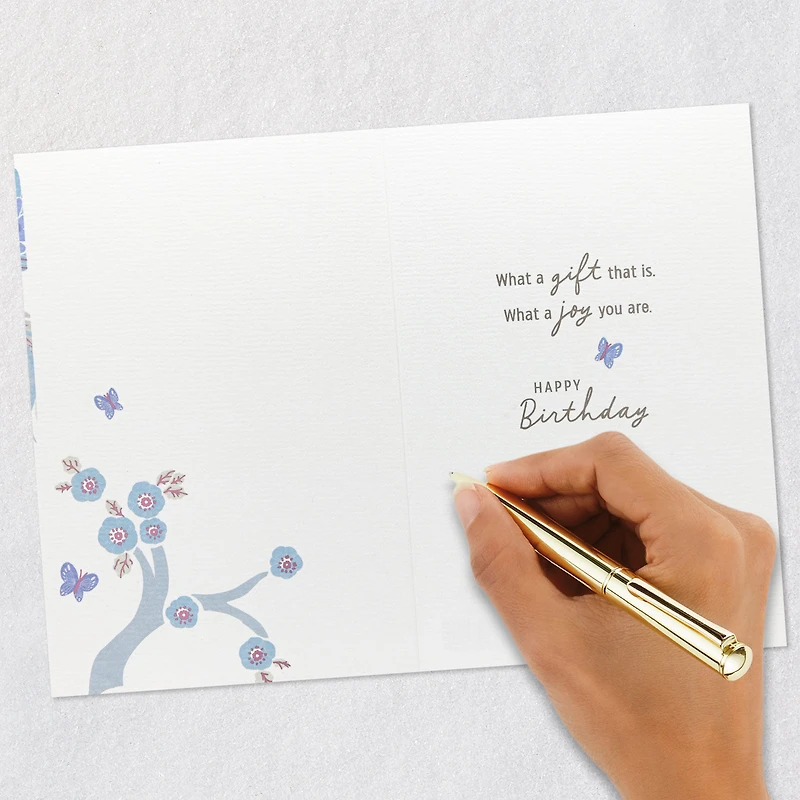 What a gift that is.
What a joy you are.
HAPPY
Birthday